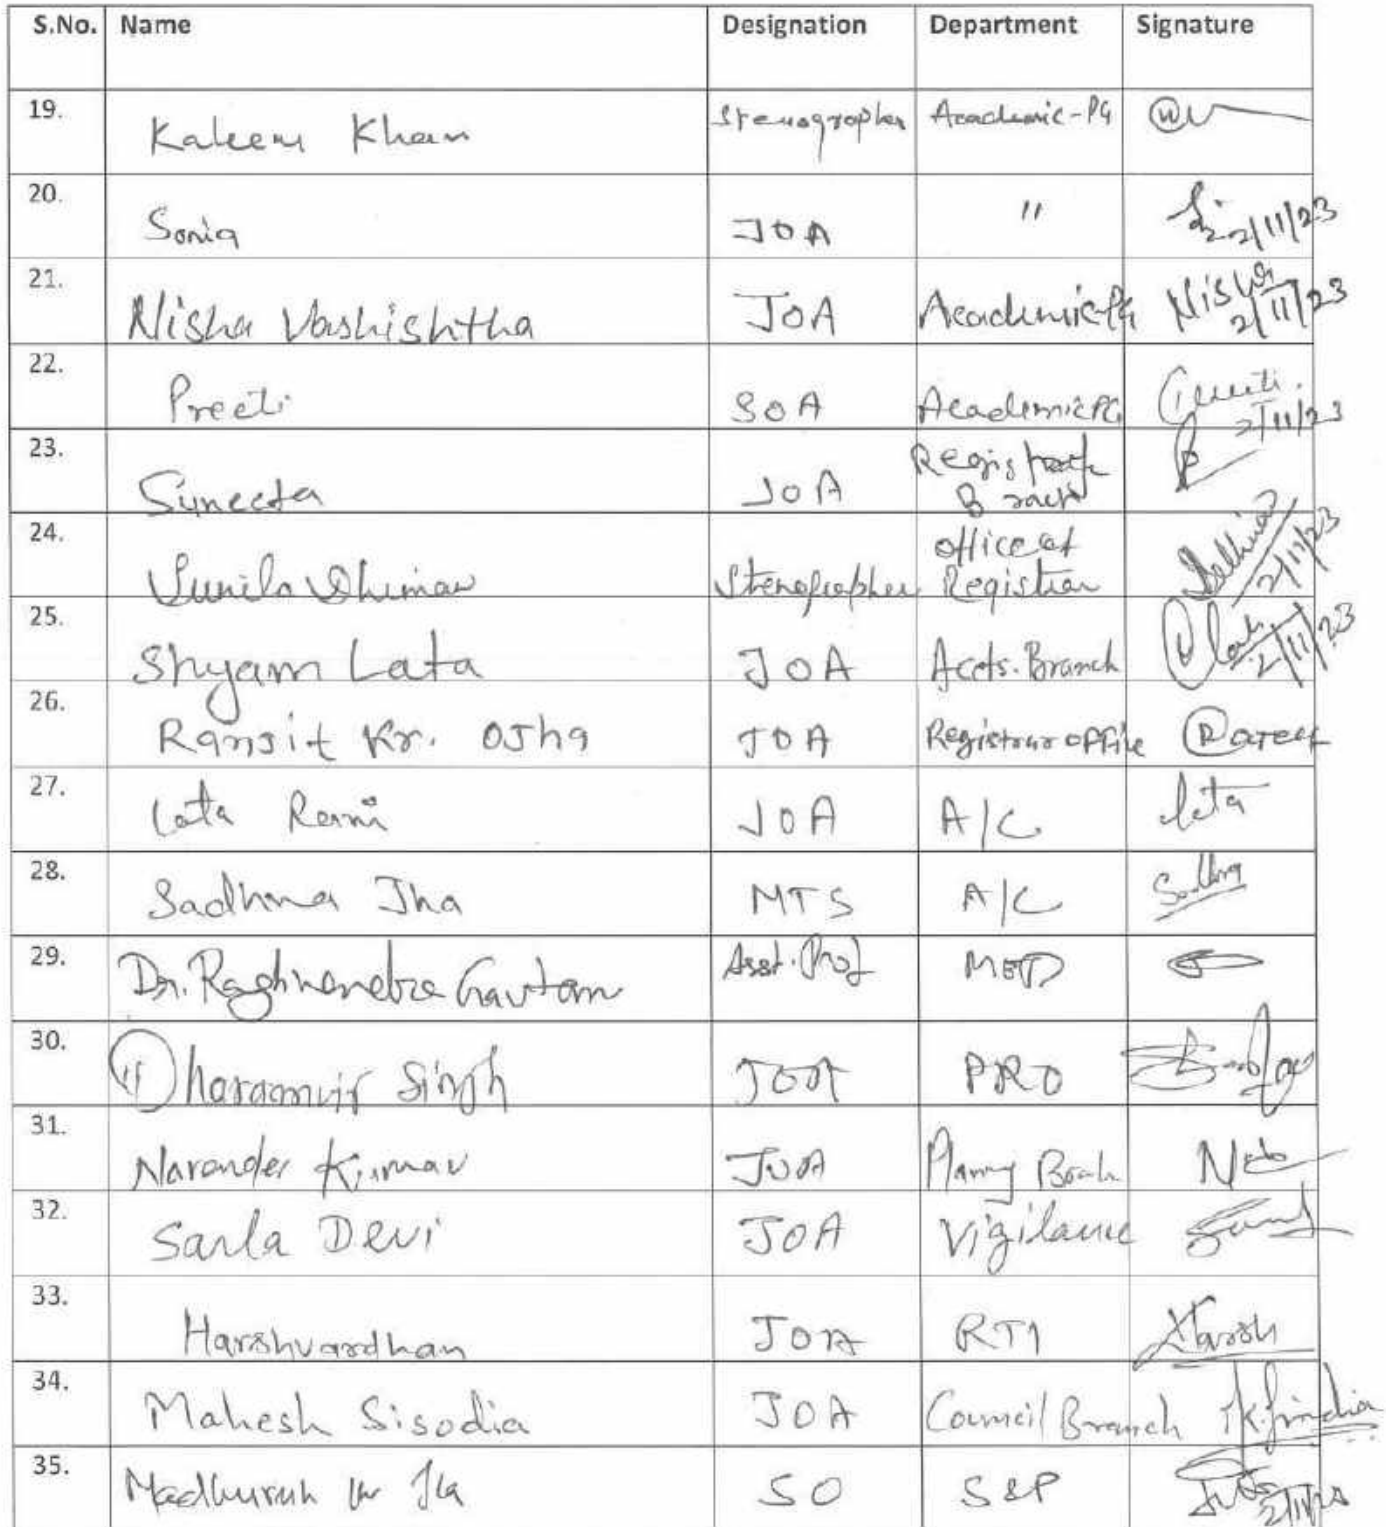 S.No. Name Designation Department Signature
19. Kaleem Khan Stenographer Academic-PG
20. Sonia JOA " 2/11/23
21. Nisha Vashishtha JOA Academic PG Nisha 2/11/23
22. Preeti SOA Academic PG Preeti 2/11/23
23. Suneeta JOA Registrar Branch
24. Sunila Dhiman Stenographer Office of Registrar 2/11/23
25. Shyam Lata JOA Accts. Branch Lata 2/11/23
26. Ranjit Kr. Ojha JOA Registrar office
27. Lata Rani JOA A/C Lata
28. Sadhna Jha MTS A/C Sadhna
29. Dr. Raghvendra Gautam Asst. Prof MED
30. Dharamvir Singh JOA PRO
31. Narender Kumar JOA Planning
32. Sarla Devi JOA Vigilance
33. Harshvardhan JOA RTI Harsh
34. Mahesh Sisodia JOA Council Branch
35. SO S&P 2/11/23